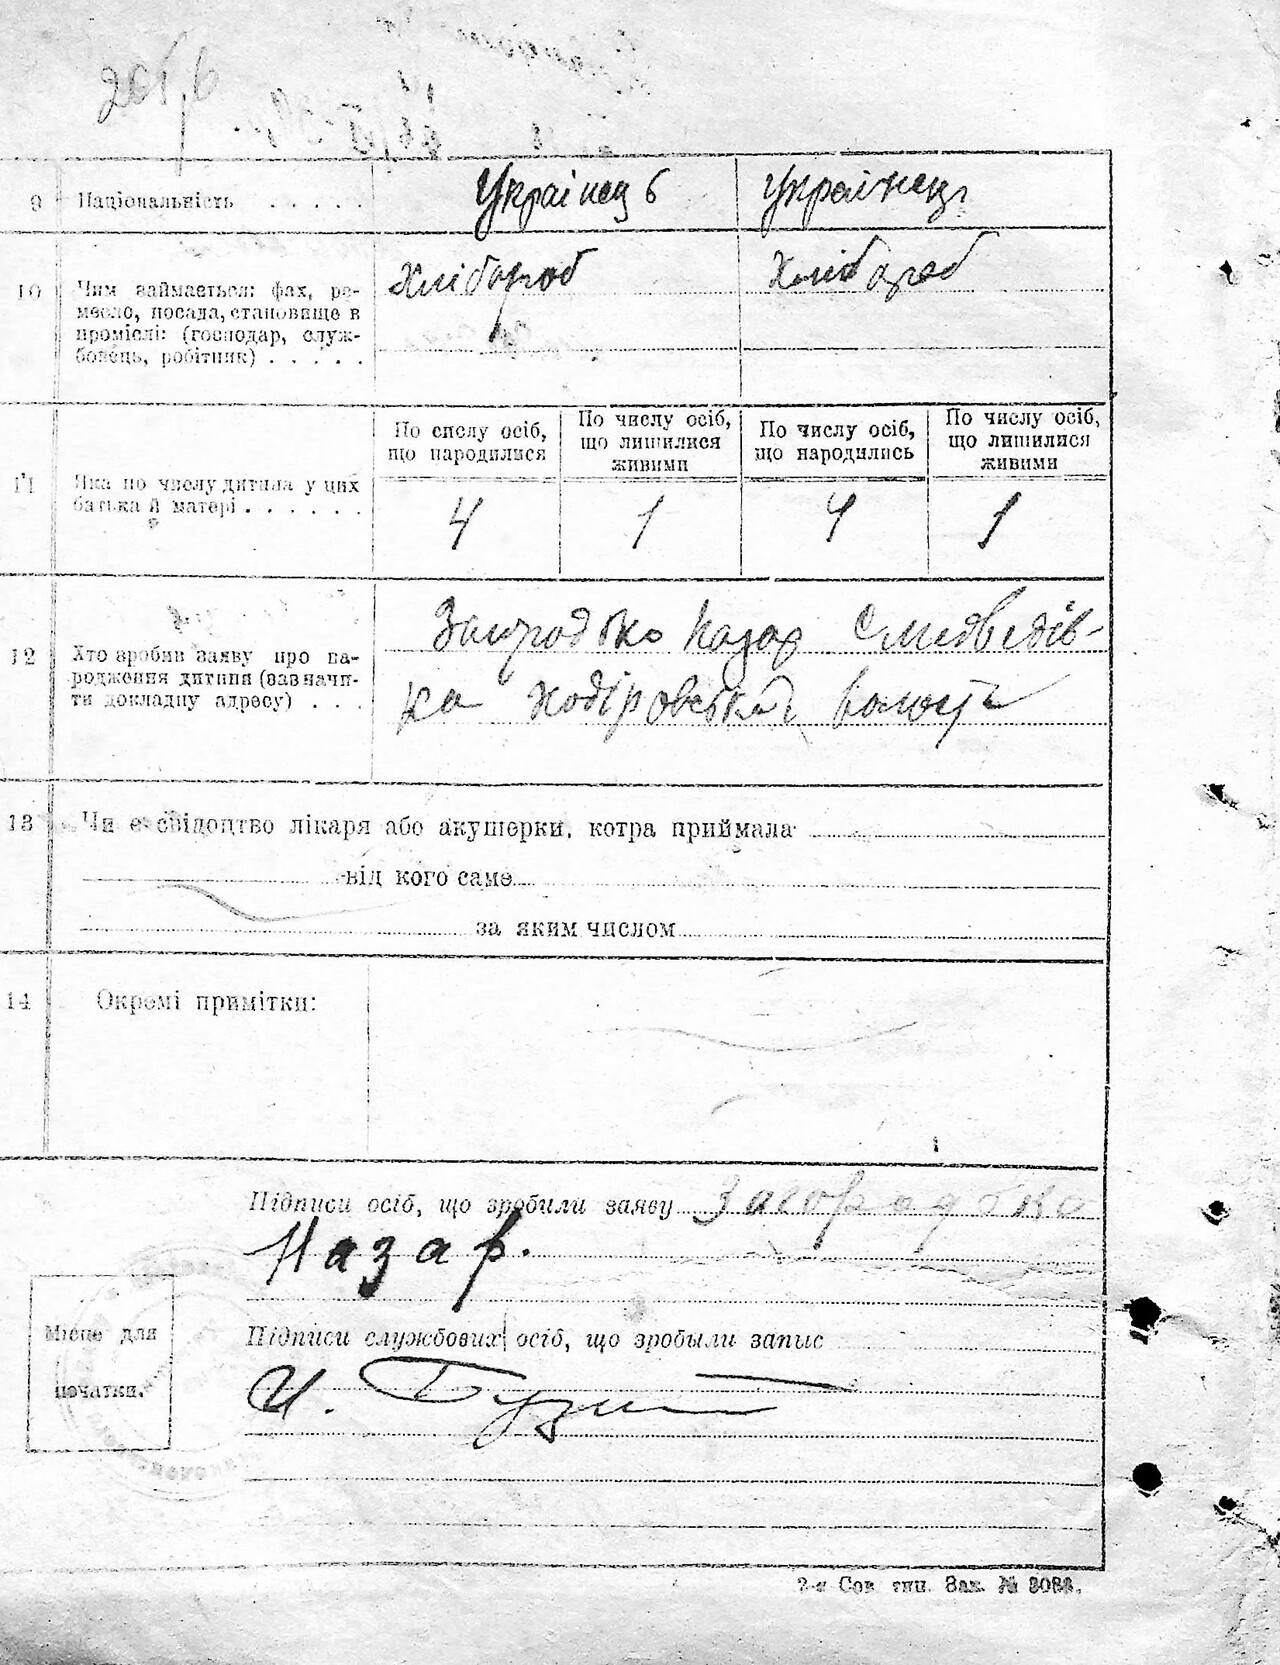 9 Національність . . . . . Українець українець
10 Чим займається: фах, ре-
месло, посада, становище в
промислі: (господар, служ-
бовець, робітник) . . . . .
Хлібороб Хлібороб
По числу осіб, що народилися
По числу осіб, що лишилися живими
По числу осіб, що народились
По числу осіб, що лишилися живими
11 Яка по числу дитина у цих
батька й матері . . . . . .
4 1 4 1
12 Хто зробив заяву про на-
родження дитини (зазначи-
ти докладну адресу) . . .
Загородько Назар с Медведів-
ка волость
13 Чи є свідоцтво лікаря або акушерки, котра приймала
від кого саме
за яким числом
14 Окремі примітки:
Підписи осіб, що зробили заяву Загородько
Назар.
Місце для
печатки.
Підписи службових осіб, що зробыли запыс
И.
2-я Сов. тип. Зак. №